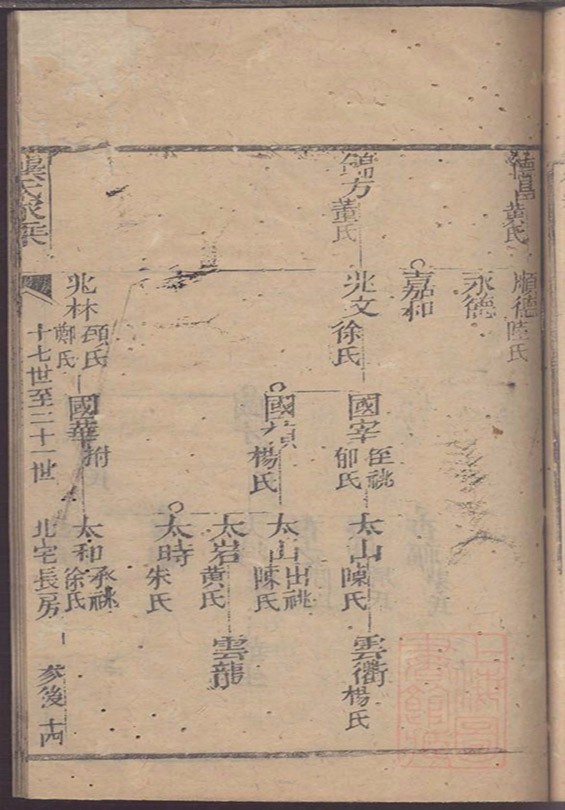 德昌黃氏
順德陸氏
永德
嘉和
德方董氏
兆文徐氏
國宰侄祧邰氏
太山陳氏
雲衢楊氏
國楨楊氏
太山出祧陳氏
太岩黃氏
雲龍
太時朱氏
兆林項氏鄭氏
國華附
太和承祧徐氏
龔氏家乘
十七世至二十一世
北宅長房
參後十四
上海
書館藏